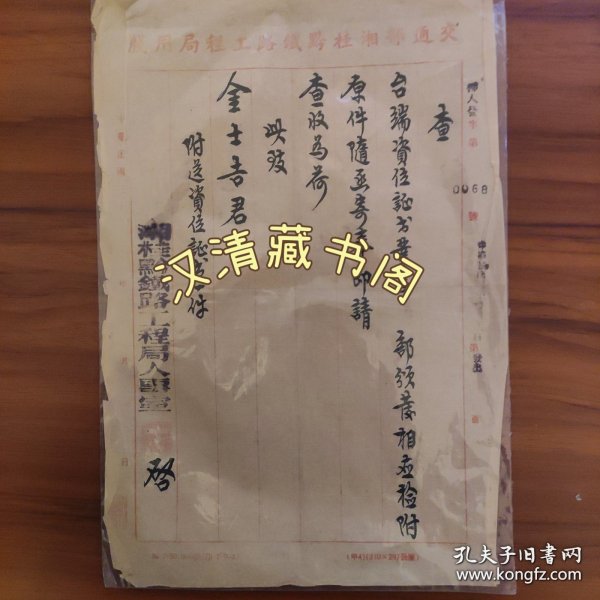 交通部湘桂黔鐵路工程局用牋
字第0068號
查
台端資位証書業 部頒發相应檢附
原件隨函寄 即請
查收為荷
此致
金士吉君
附送資位証書 件
湘桂黔鐵路工程局人事室
啓
汉清藏书阁
孔夫子旧书网
www.kongfz.com